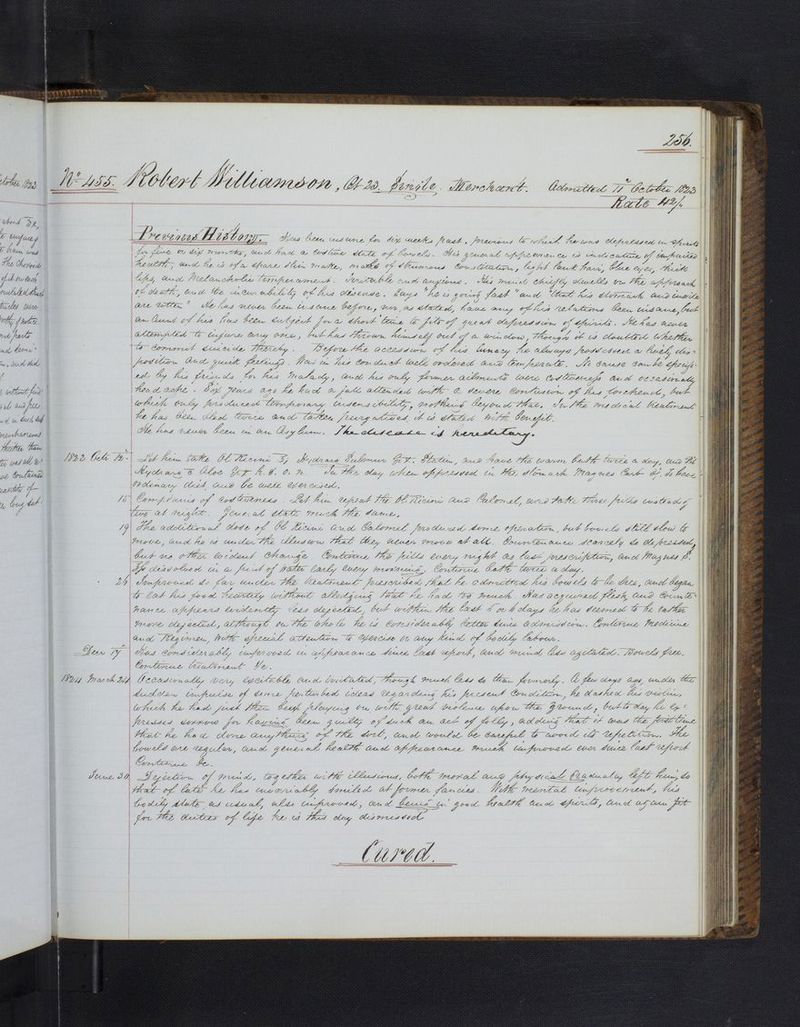 256.
No. 455. Robert Williamson, Æt 23. Single, Merchant. Admitted 11th October 1823
Rate 42/.
Previous History. Has been insane for six weeks past, previous to which he was depressed in spirits
for five or six months, and had a costive state of bowels. His general appearance is indicative of impaired
health, and he is of a spare thin make, marks of strumous constitution, light lank hair, blue eyes, thick
lips, and Melancholic temperament. Irritable and anxious. His mind chiefly dwells on the approach
of death, and the incurability of his disease. Says "he is going fast" and "that his stomach and inside
are rotten". He has never been insane before, nor, as stated, have any of his relations been insane, but
an Aunt of his has been subject for a short time to fits of great depression of spirits. He has never
attempted to injure any one, but has thrown himself out of a window, though it is doubted whether
to commit suicide thereby. Before the accession of his lunacy he always possessed a lively dis-
position and quick feelings. Was in his conduct well ordered and temperate. No cause can be specifi-
ed by his friends for his malady, and his only former ailments were costiveness and occasionally
headache. Six years ago he had a fall attended with a severe contusion of his forehead, but
which only produced temporary insensibility, nothing beyond that. In the medical treatment
he has been bled twice and taken purgatives it is stated with benefit.
He has never been in an Asylum. The disease is hereditary.
1823 Octr 12 Let him take Ol Ricini ℥j, Hydrarg Submur Gr V. Statim, and have the warm bath twice a day, and Pil
Hydrarg & Aloe Gr X h. s. o. n. In the day when oppressed in the stomach Magnes Carb To have
ordinary diet and be well exercised.
15 Complains of costiveness. Let him repeat the Ol Ricini and Calomel, and take three pills instead of
two at night. General state much the same.
19 The additional dose of Ol Ricini and Calomel produced some operation, but bowels still slow to
move, and he is under the illusion that they never move at all. Countenance scarcely so depressed,
but no other evident change. Continue the pills every night as last prescription, and Magnes S.
dissolved in a pint of water early every morning. Continue bath twice a day.
26 Improved so far under the treatment prescribed, that he admitted his bowels to be free, and began
to eat his food heartily without alledging that he had too much. Has acquired flesh, and counte-
nance appears evidently less dejected, but within the last 5 or 6 days he has seemed to be rather
more dejected, although on the whole he is considerably better since admission. Continue Medicine
and Regimen, with special attention to exercise or any kind of bodily labour.
Decr 17 Has considerably improved in appearance since last report, and mind less agitated. Bowels free.
Continue treatment &c.
1824 March 24 Occasionally very excitable and irritated, though much less so than formerly. A few days ago, under the
sudden impulse of some perverted ideas regarding his present condition, he dashed his violin,
which he had just then been playing on with great violence upon the ground, but to day he ex-
presses sorrow for having been guilty of such an act of folly, adding that it was the first time
that he had done anything of the sort, and would be careful to avoid its repetition. The
bowels are regular, and general health and appearance much improved ever since last report
Continue &c.
June 30 Dejection of mind, together with illusions, both moral and physical Gradually left him, so
that of late he has invariably smiled at former fancies. With mental improvement, his
bodily state as usual, also improved, and being in good health and spirits, and again fit
for the duties of life he is this day dismissed
Cured.